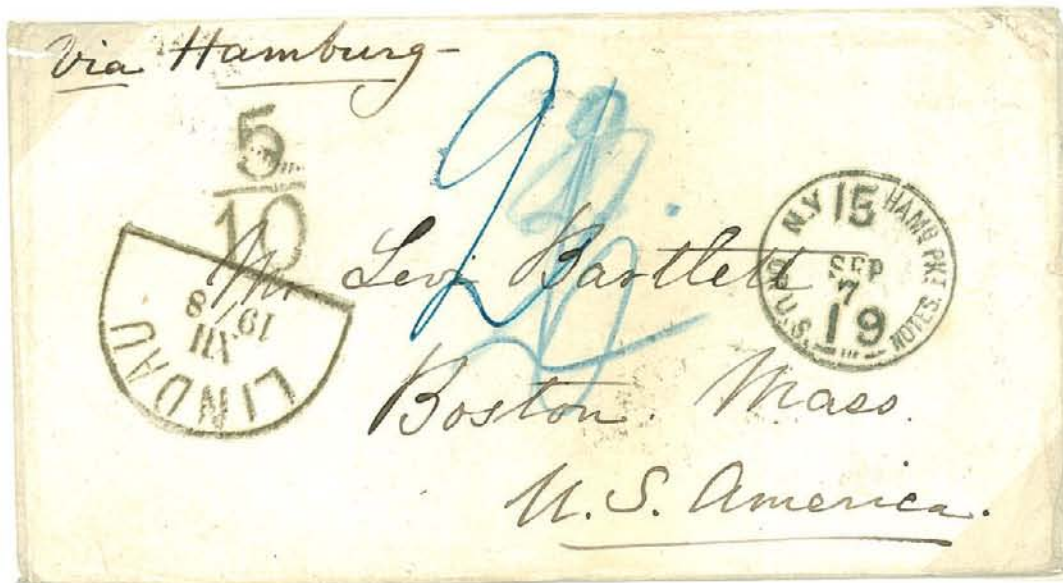 Via Hamburg-
5
10
LINDAU
19/8
N.Y. HAMB. PKT.
15
SEP
7
19
OR U.S. NOTES.
Mr. Levi Bartlett
Boston. Mass.
U.S. America.